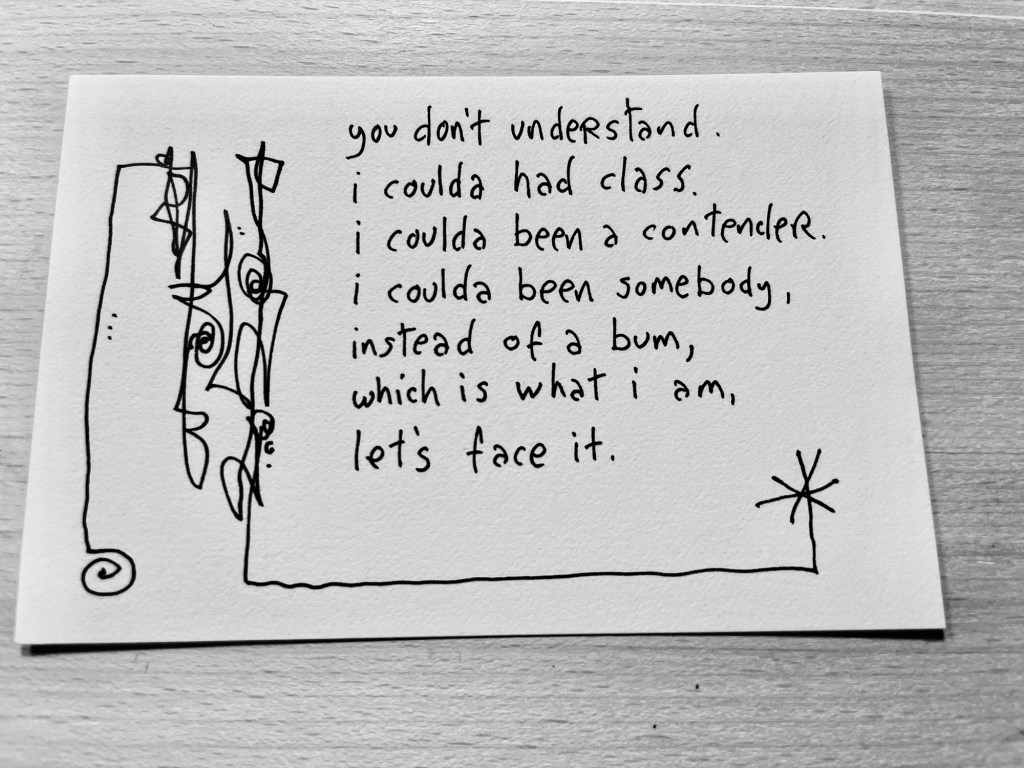 you don't understand.
i coulda had class.
i coulda been a contender.
i coulda been somebody,
instead of a bum,
which is what i am,
let's face it.